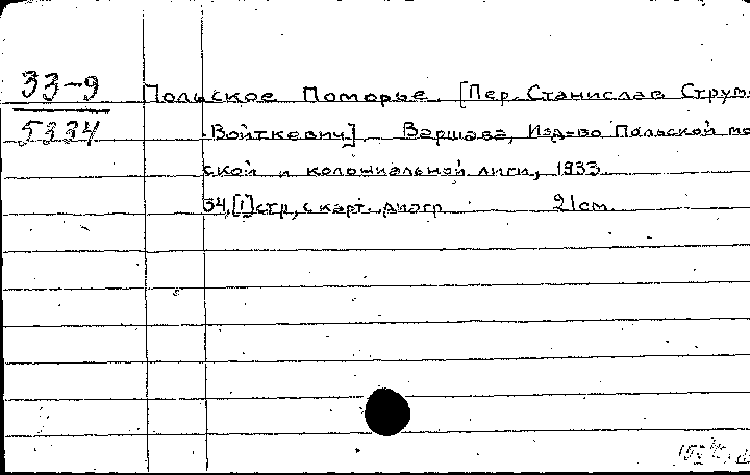 33-9
5334
Польское Поморье. [Пер. Станислав Струм-
Войткевич]. Варшава, Изд-во Польской мо
ской и колониальной лиги, 1933.
34,[1]стр., с карт. диагр. 21см.